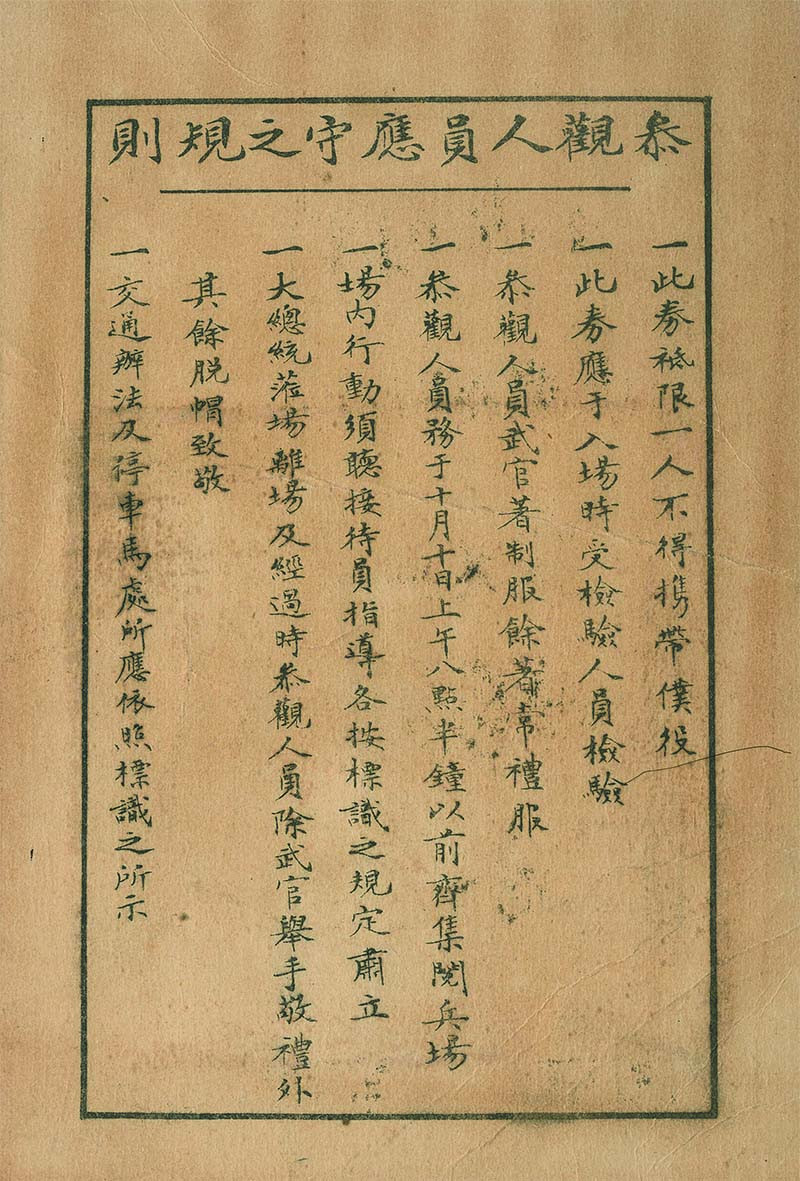 叅觀人員應守之規則
一此券祗限一人不得携帶僕役
一此券應于入場時受檢驗人員檢驗
一叅觀人員武官著制服餘著常禮服
一叅觀人員務于十月十日上午八點半鐘以前齊集閱兵場
一場內行動須聽接待員指導各按標識之規定肅立
一大總統蒞場離場及經過時叅觀人員除武官舉手敬禮外
其餘脱帽致敬
一交通辦法及停車馬處所應依照標識之所示